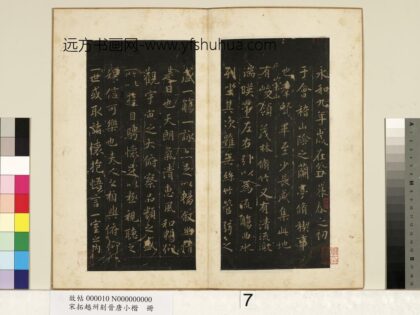 远方书画网-www.yfshuhua.com
永和九年歲在癸丑暮春之初
于會稽山陰之蘭亭脩禊事
也群賢畢至少長咸集此地
有峻領茂林脩竹又有清流激
湍暎帶左右引以為流觴曲水
列坐其次雖無絲竹管弦之
盛一觴一詠亦足以暢敘
是日也天朗氣清惠風和暢仰
觀宇宙之大俯察品類之盛
所以遊目騁懷足以極視聽之
娛信可樂也夫人之相與俯仰
一世或取諸懷抱悟言一室之內
故帖 000010 N000000000
宋拓越州刻晉唐小楷 冊
7